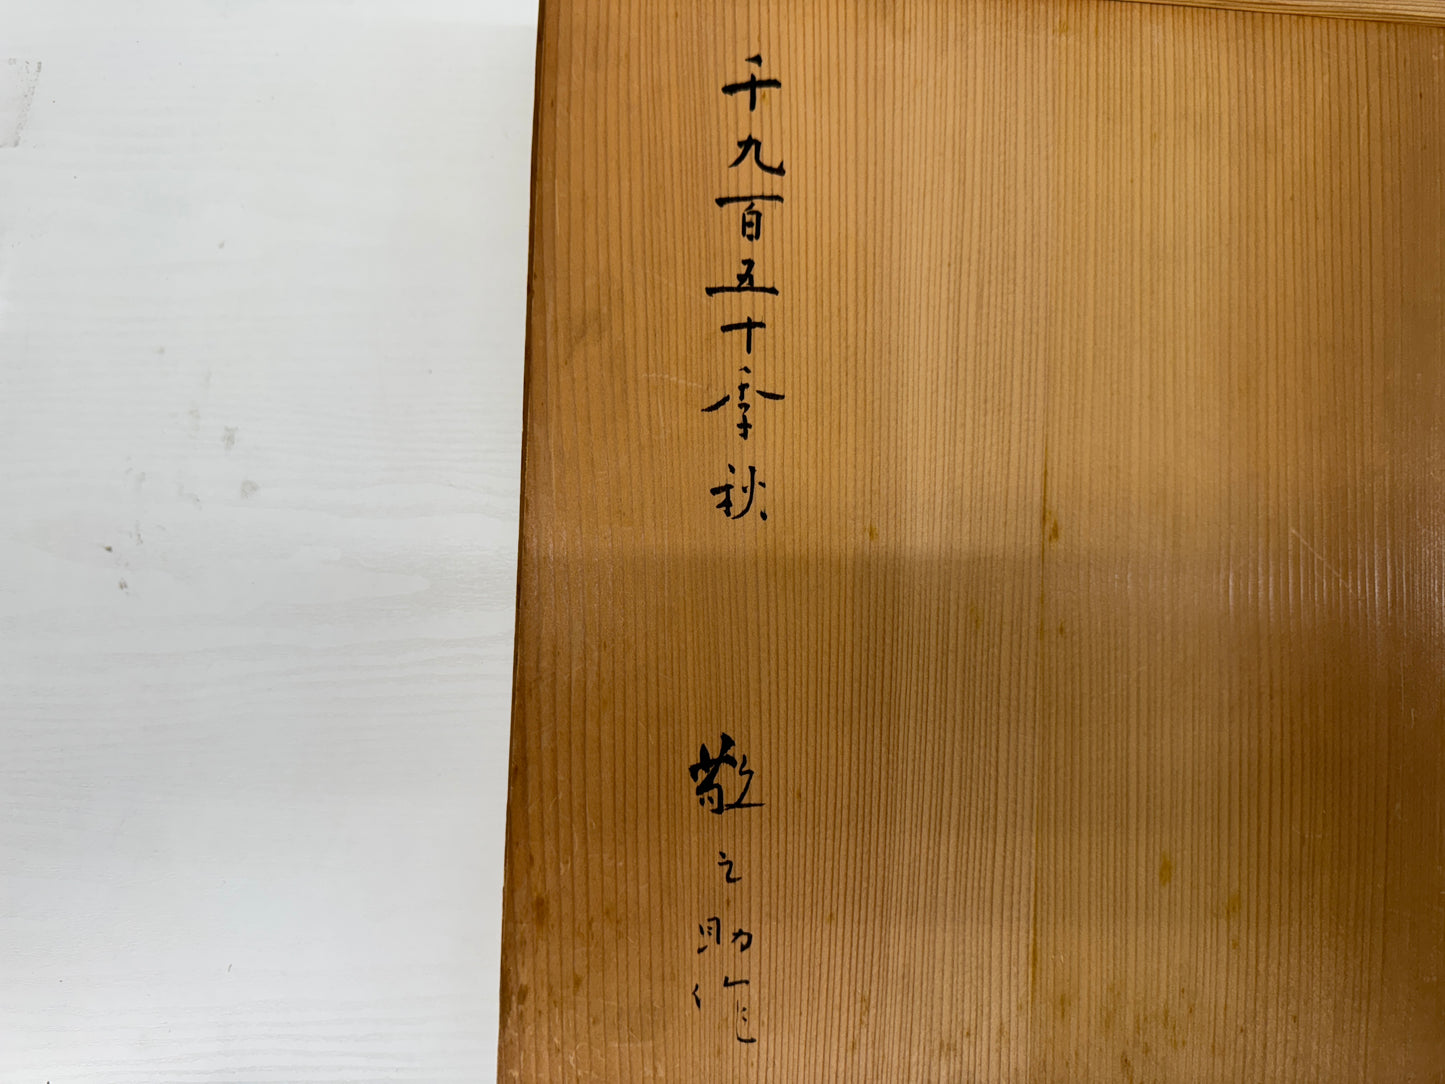 千九百五十季秋
敬之助作